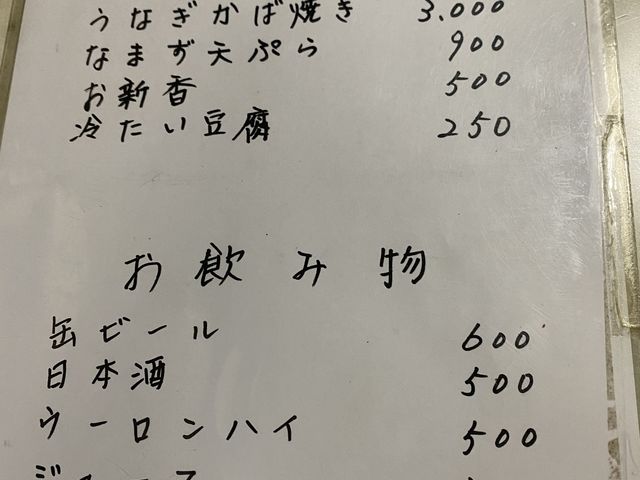 うなぎかば焼き 3.000
なまず天ぷら 900
お新香 500
冷たい豆腐 250
お飲み物
缶ビール 600
日本酒 500
ウーロンハイ 500